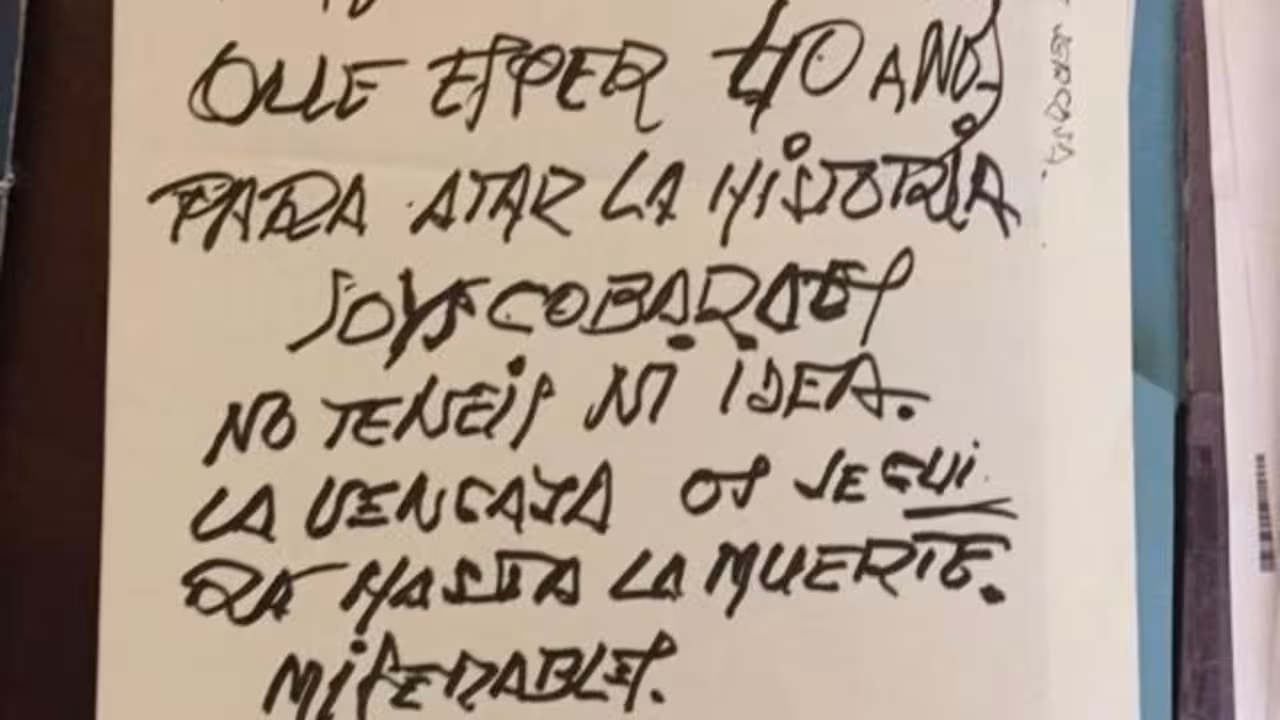 QUE ESPER 40 AÑOS
PARA ATAR LA HISTORIA
SOYS COBARDES
NO TENEIS NI IDEA.
LA VENGAJA OS SEGUI
RA HASTA LA MUERTE.
MISERABLES.